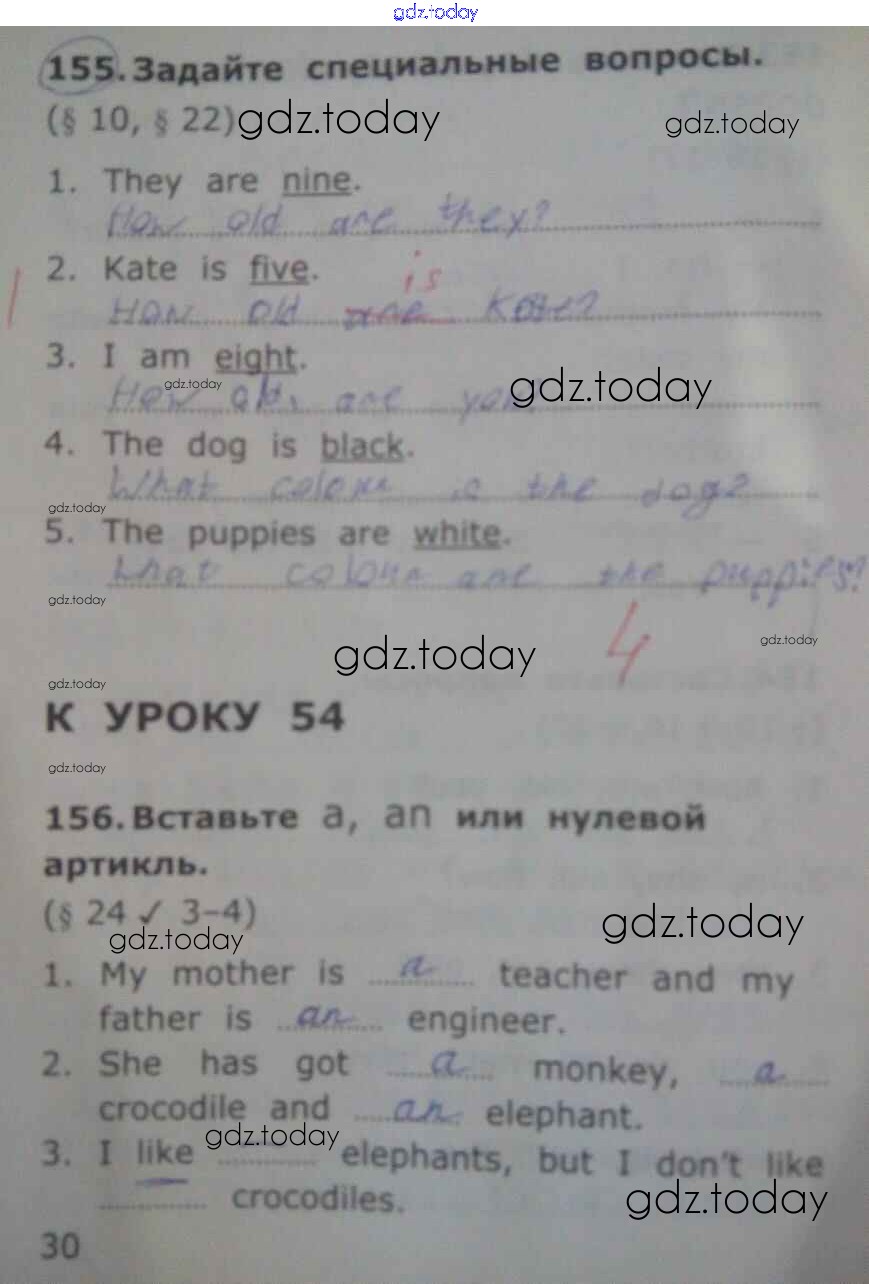 gdz.today
155. Задайте специальные вопросы.
(§ 10, § 22) gdz.today gdz.today
1. They are nine.
How old are they?
2. Kate is five. is
1 How old are Kate?
3. I am eight.
gdz.today gdz.today
How old are you
4. The dog is black.
What colour is the dog?
gdz.today
5. The puppies are white.
What colour are the puppies?
gdz.today
4
gdz.today gdz.today
gdz.today
К УРОКУ 54
gdz.today
156. Вставьте a, an или нулевой
артикль.
(§ 24 ✓ 3–4)
gdz.today gdz.today
1. My mother is a teacher and my
father is an engineer.
2. She has got a monkey, a
crocodile and an elephant.
gdz.today
3. I like elephants, but I don't like
crocodiles.
gdz.today
30